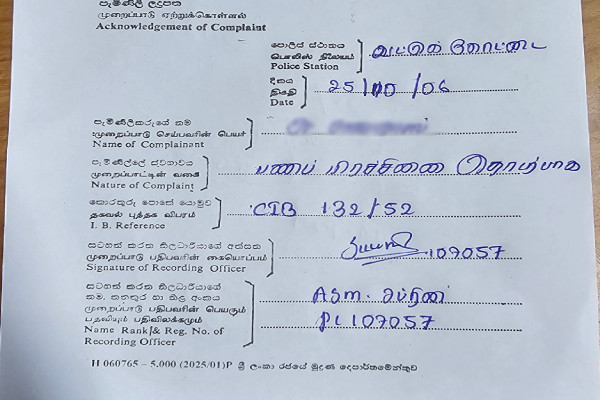 පැමිණිලි ලදුපත
முறைப்பாடு ஏற்றுக்கொள்ளல்
Acknowledgement of Complaint
පොලිස් ස්ථානය
பொலிஸ் நிலையம்
Police Station
வட்டுக் கோட்டை
දිනය
திகதி
Date
25/10/06
පැමිණිලිකරුගේ නම
முறைப்பாடு செய்பவரின் பெயர்
Name of Complainant
පැමිණිල්ලේ ස්වභාවය
முறைப்பாட்டின் வகை
Nature of Complaint
பணப் பிரச்சினை தொடர்பாக
තොරතුරු පොතේ යොමුව
தகவல் புத்தக விபரம்
I. B. Reference
CIB 132/52
සටහන් කරන නිලධාරියාගේ අත්සන
முறைப்பாடு பதிபவரின் கையொப்பம்
Signature of Recording Officer
109057
සටහන් කරන නිලධාරියාගේ
නම, තනතුර හා නිල අංකය
முறைப்பாடு பதிபவரின் பெயரும்
பதவியும் பதிவிலக்கமும்
Name Rank & Reg. No. of
Recording Officer
ASM.
PC 109057
H 060765 – 5,000 (2025/01)P ශ්‍රී ලංකා රජයේ මුද්‍රණ දෙපාර්තමේන්තුව